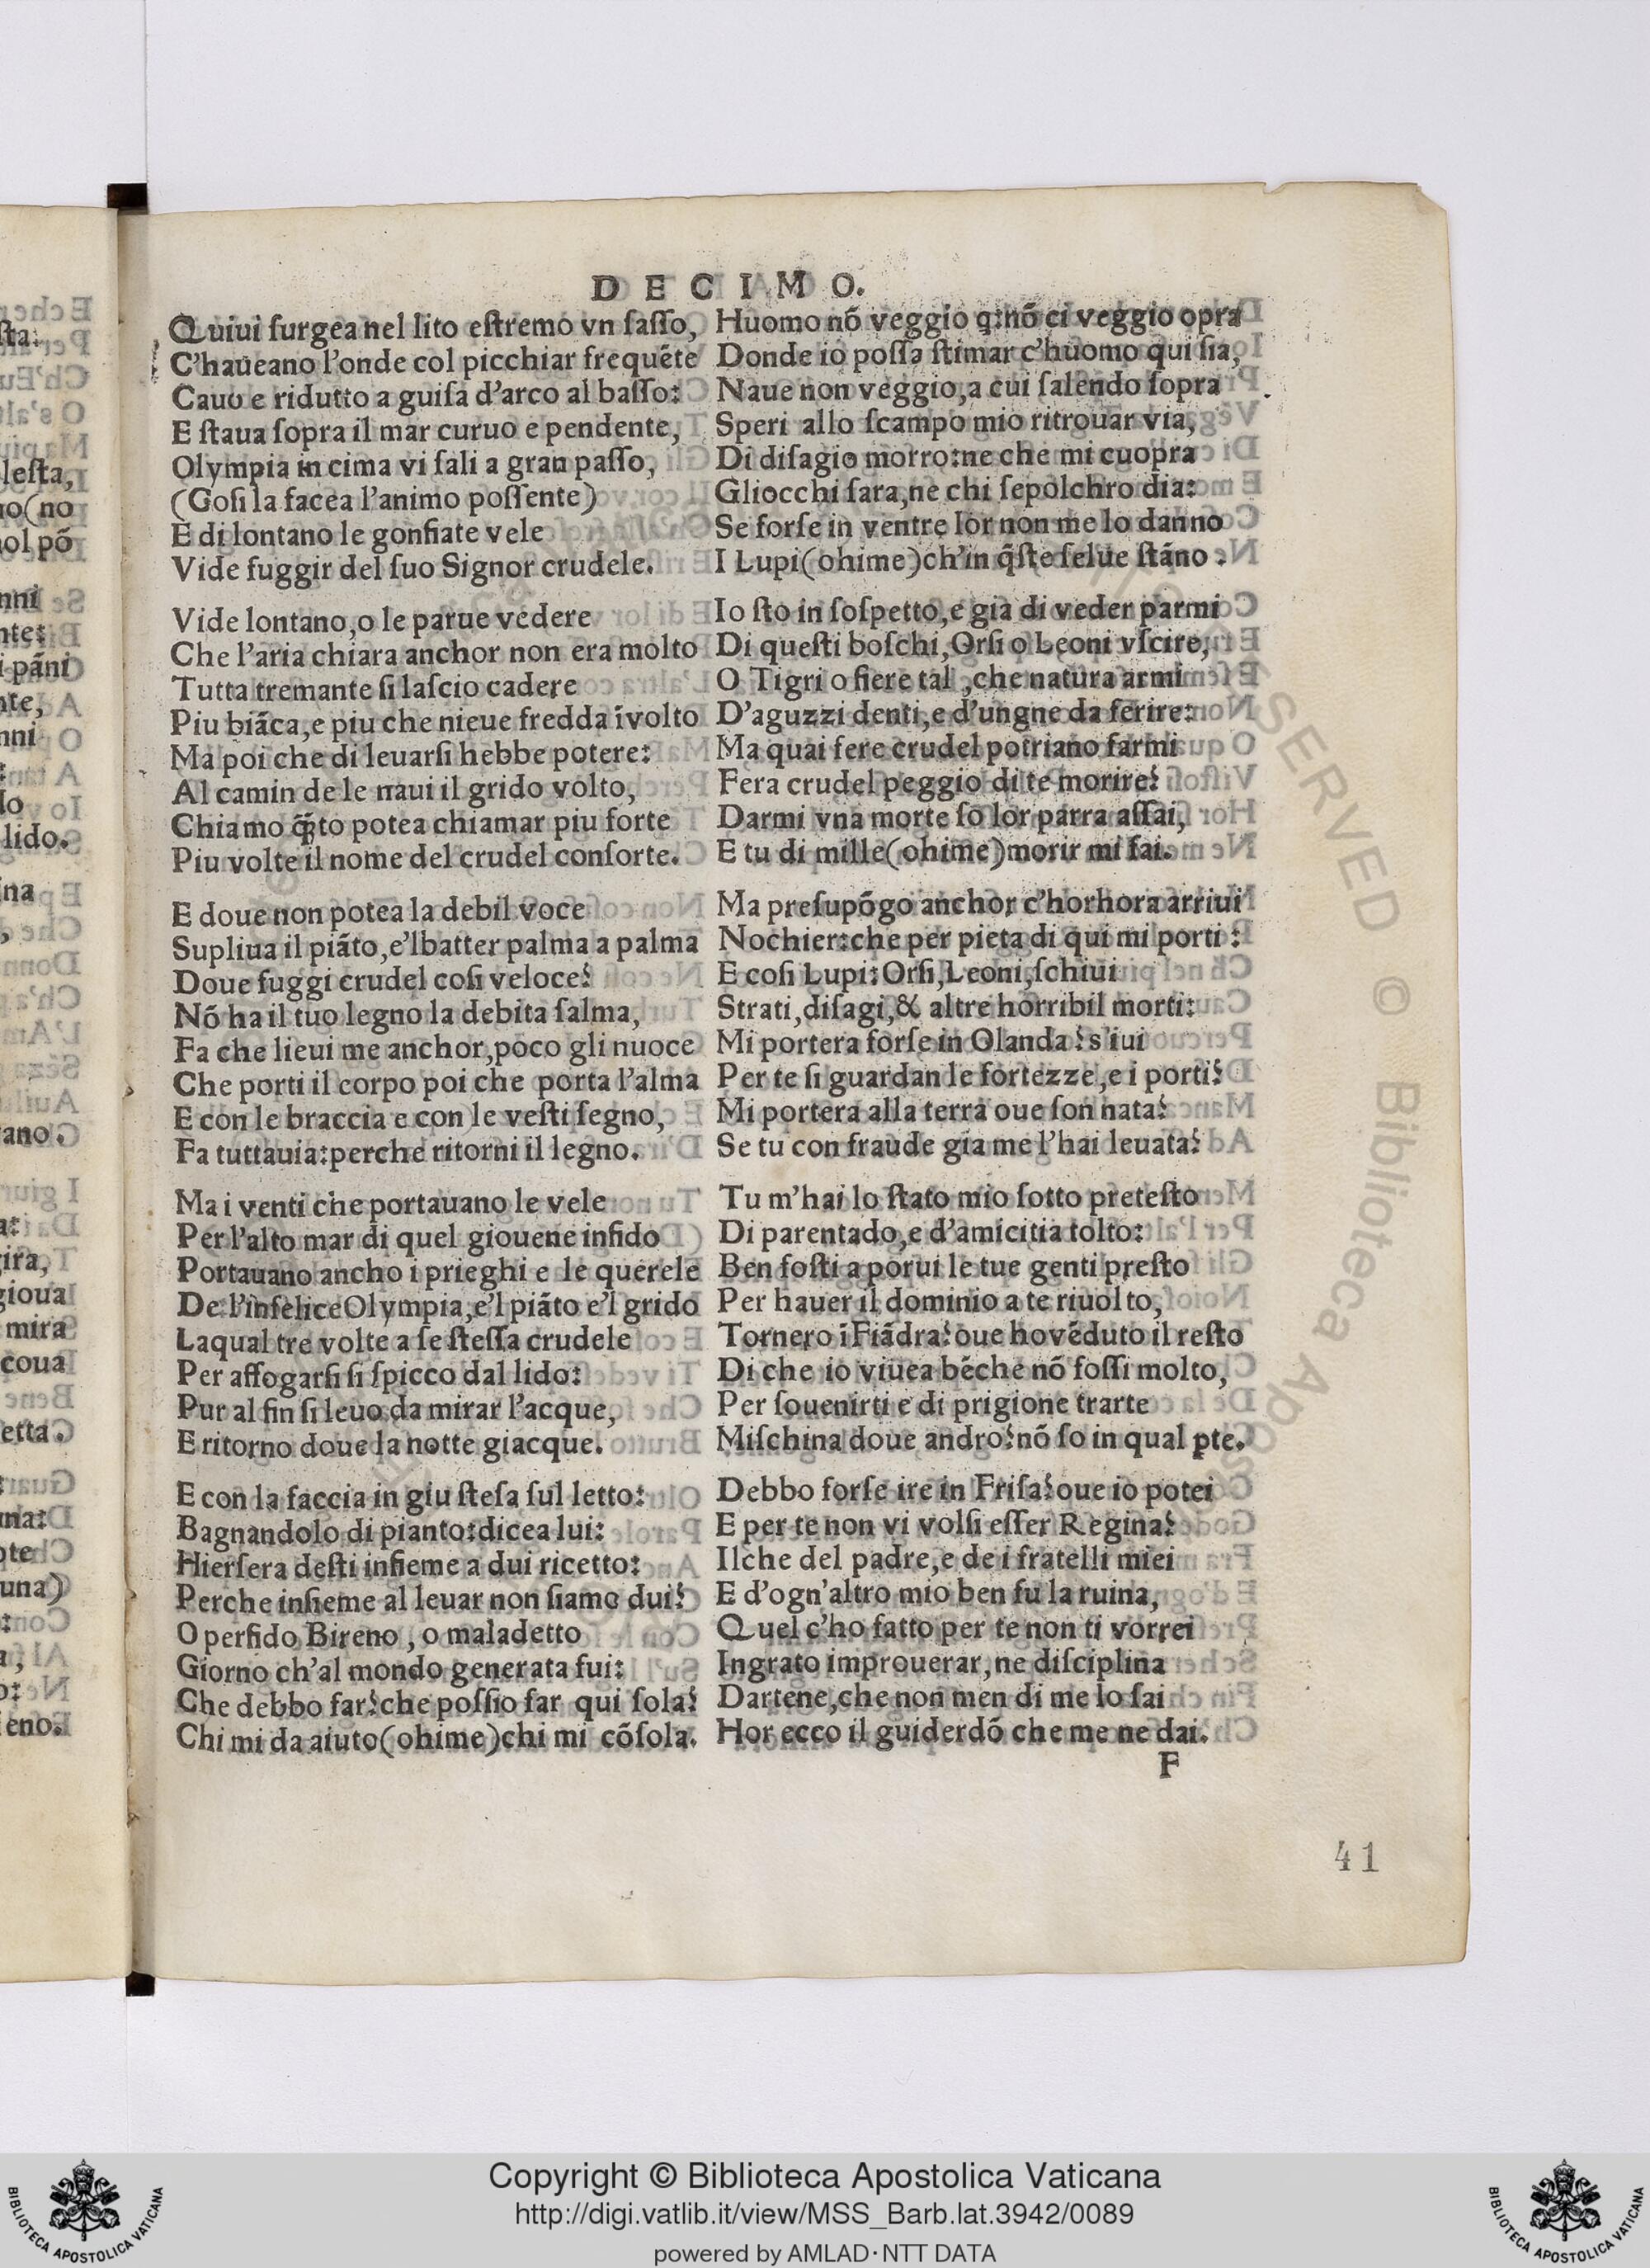 DECIMO.
Quiui ſurgea nel lito eſtremo vn ſaſſo,
C'haueano l'onde col picchiar frequēte
Cauo e ridutto a guiſa d'arco al baſſo:
E ſtaua ſopra il mar curuo e pendente,
Olympia in cima vi ſali a gran paſſo,
(Coſi la facea l'animo poſſente)
E di lontano le gonfiate vele
Vide fuggir del ſuo Signor crudele.
Vide lontano, o le parue vedere
Che l'aria chiara anchor non era molto
Tutta tremante ſi laſcio cadere
Piu biãca, e piu che nieue fredda ĩ volto
Ma poi che di leuarſi hebbe potere:
Al camin de le naui il grido volto,
Chiamo q̃to potea chiamar piu forte
Piu volte il nome del crudel conſorte.
E doue non potea la debil voce
Supliua il piãto, e'l batter palma a palma
Doue fuggi crudel coſi veloce?
Nõ ha il tuo legno la debita ſalma,
Fa che lieui me anchor, poco gli nuoce
Che porti il corpo poi che porta l'alma
E con le braccia e con le veſti ſegno,
Fa tuttauia: perche ritorni il legno.
Ma i venti che portauano le vele
Per l'alto mar di quel giouene infido
Portauano ancho i prieghi e le querele
De l'infelice Olympia, e'l piãto e'l grido
Laqual tre volte a ſe ſteſſa crudele
Per affogarſi ſi ſpicco dal lido:
Pur al fin ſi leuo da mirar l'acque,
E ritorno doue la notte giacque.
E con la faccia in giu ſteſa ſul letto:
Bagnandolo di pianto: dicea lui:
Hierſera deſti inſieme a dui ricetto:
Perche inſieme al leuar non ſiamo dui?
O perfido Bireno, o maladetto
Giorno ch'al mondo generata fui:
Che debbo far? che poſſio far qui ſola?
Chi mi da aiuto (ohime) chi mi cõſola.
Huomo nõ veggio q: nõ ci veggio opra
Donde io poſſa ſtimar c'huomo qui ſia,
Naue non veggio, a cui ſalendo ſopra
Speri allo ſcampo mio ritrouar via,
Di diſagio morro: ne che mi cuopra
Gliocchi ſara, ne chi ſepolchro dia:
Se forſe in ventre lor non me lo danno
I Lupi (ohime) ch'in q̃ſte ſelue ſtãno:
Io ſto in ſoſpetto, e gia di veder parmi
Di queſti boſchi, Orſi o Leoni vſcire,
O Tigri o fiere tal, che natura armi
D'aguzzi denti, e d'ungne da ferire:
Ma quai fere crudel potriano farmi
Fera crudel peggio di te morire?
Darmi vna morte ſo lor parra aſſai,
E tu di mille (ohime) morir mi fai.
Ma preſupõgo anchor c'horhora arriui
Nochier: che per pieta di qui mi porti:
E coſi Lupi: Orſi, Leoni, ſchiui
Strati, diſagi, & altre horribil morti:
Mi portera forſe in Olanda? s'iui
Per te ſi guardan le fortezze, e i porti?
Mi portera alla terra oue ſon nata?
Se tu con fraude gia me l'hai leuata?
Tu m'hai lo ſtato mio ſotto preteſto
Di parentado, e d'amicitia tolto:
Ben foſti a porui le tue genti preſto
Per hauer il dominio a te riuolto,
Tornero ĩ Fiãdra? oue ho vẽduto il reſto
Di che io viuea bẽche nõ foſſi molto,
Per ſouenirti e di prigione trarte
Miſchina doue andro? nõ ſo in qual pte.
Debbo forſe ire in Friſa? oue io potei
E per te non vi volſi eſſer Regina?
Ilche del padre, e de i fratelli miei
E d'ogn'altro mio ben fu la ruina,
Quel c'ho fatto per te non ti vorrei
Ingrato improuerar, ne diſciplina
Dartene, che non men di me lo ſai
Hor ecco il guiderdõ che me ne dai.
F
41
Copyright © Biblioteca Apostolica Vaticana
http://digi.vatlib.it/view/MSS_Barb.lat.3942/0089
powered by AMLAD·NTT DATA
BIBLIOTECA APOSTOLICA VATICANA
BIBLIOTECA APOSTOLICA VATICANA